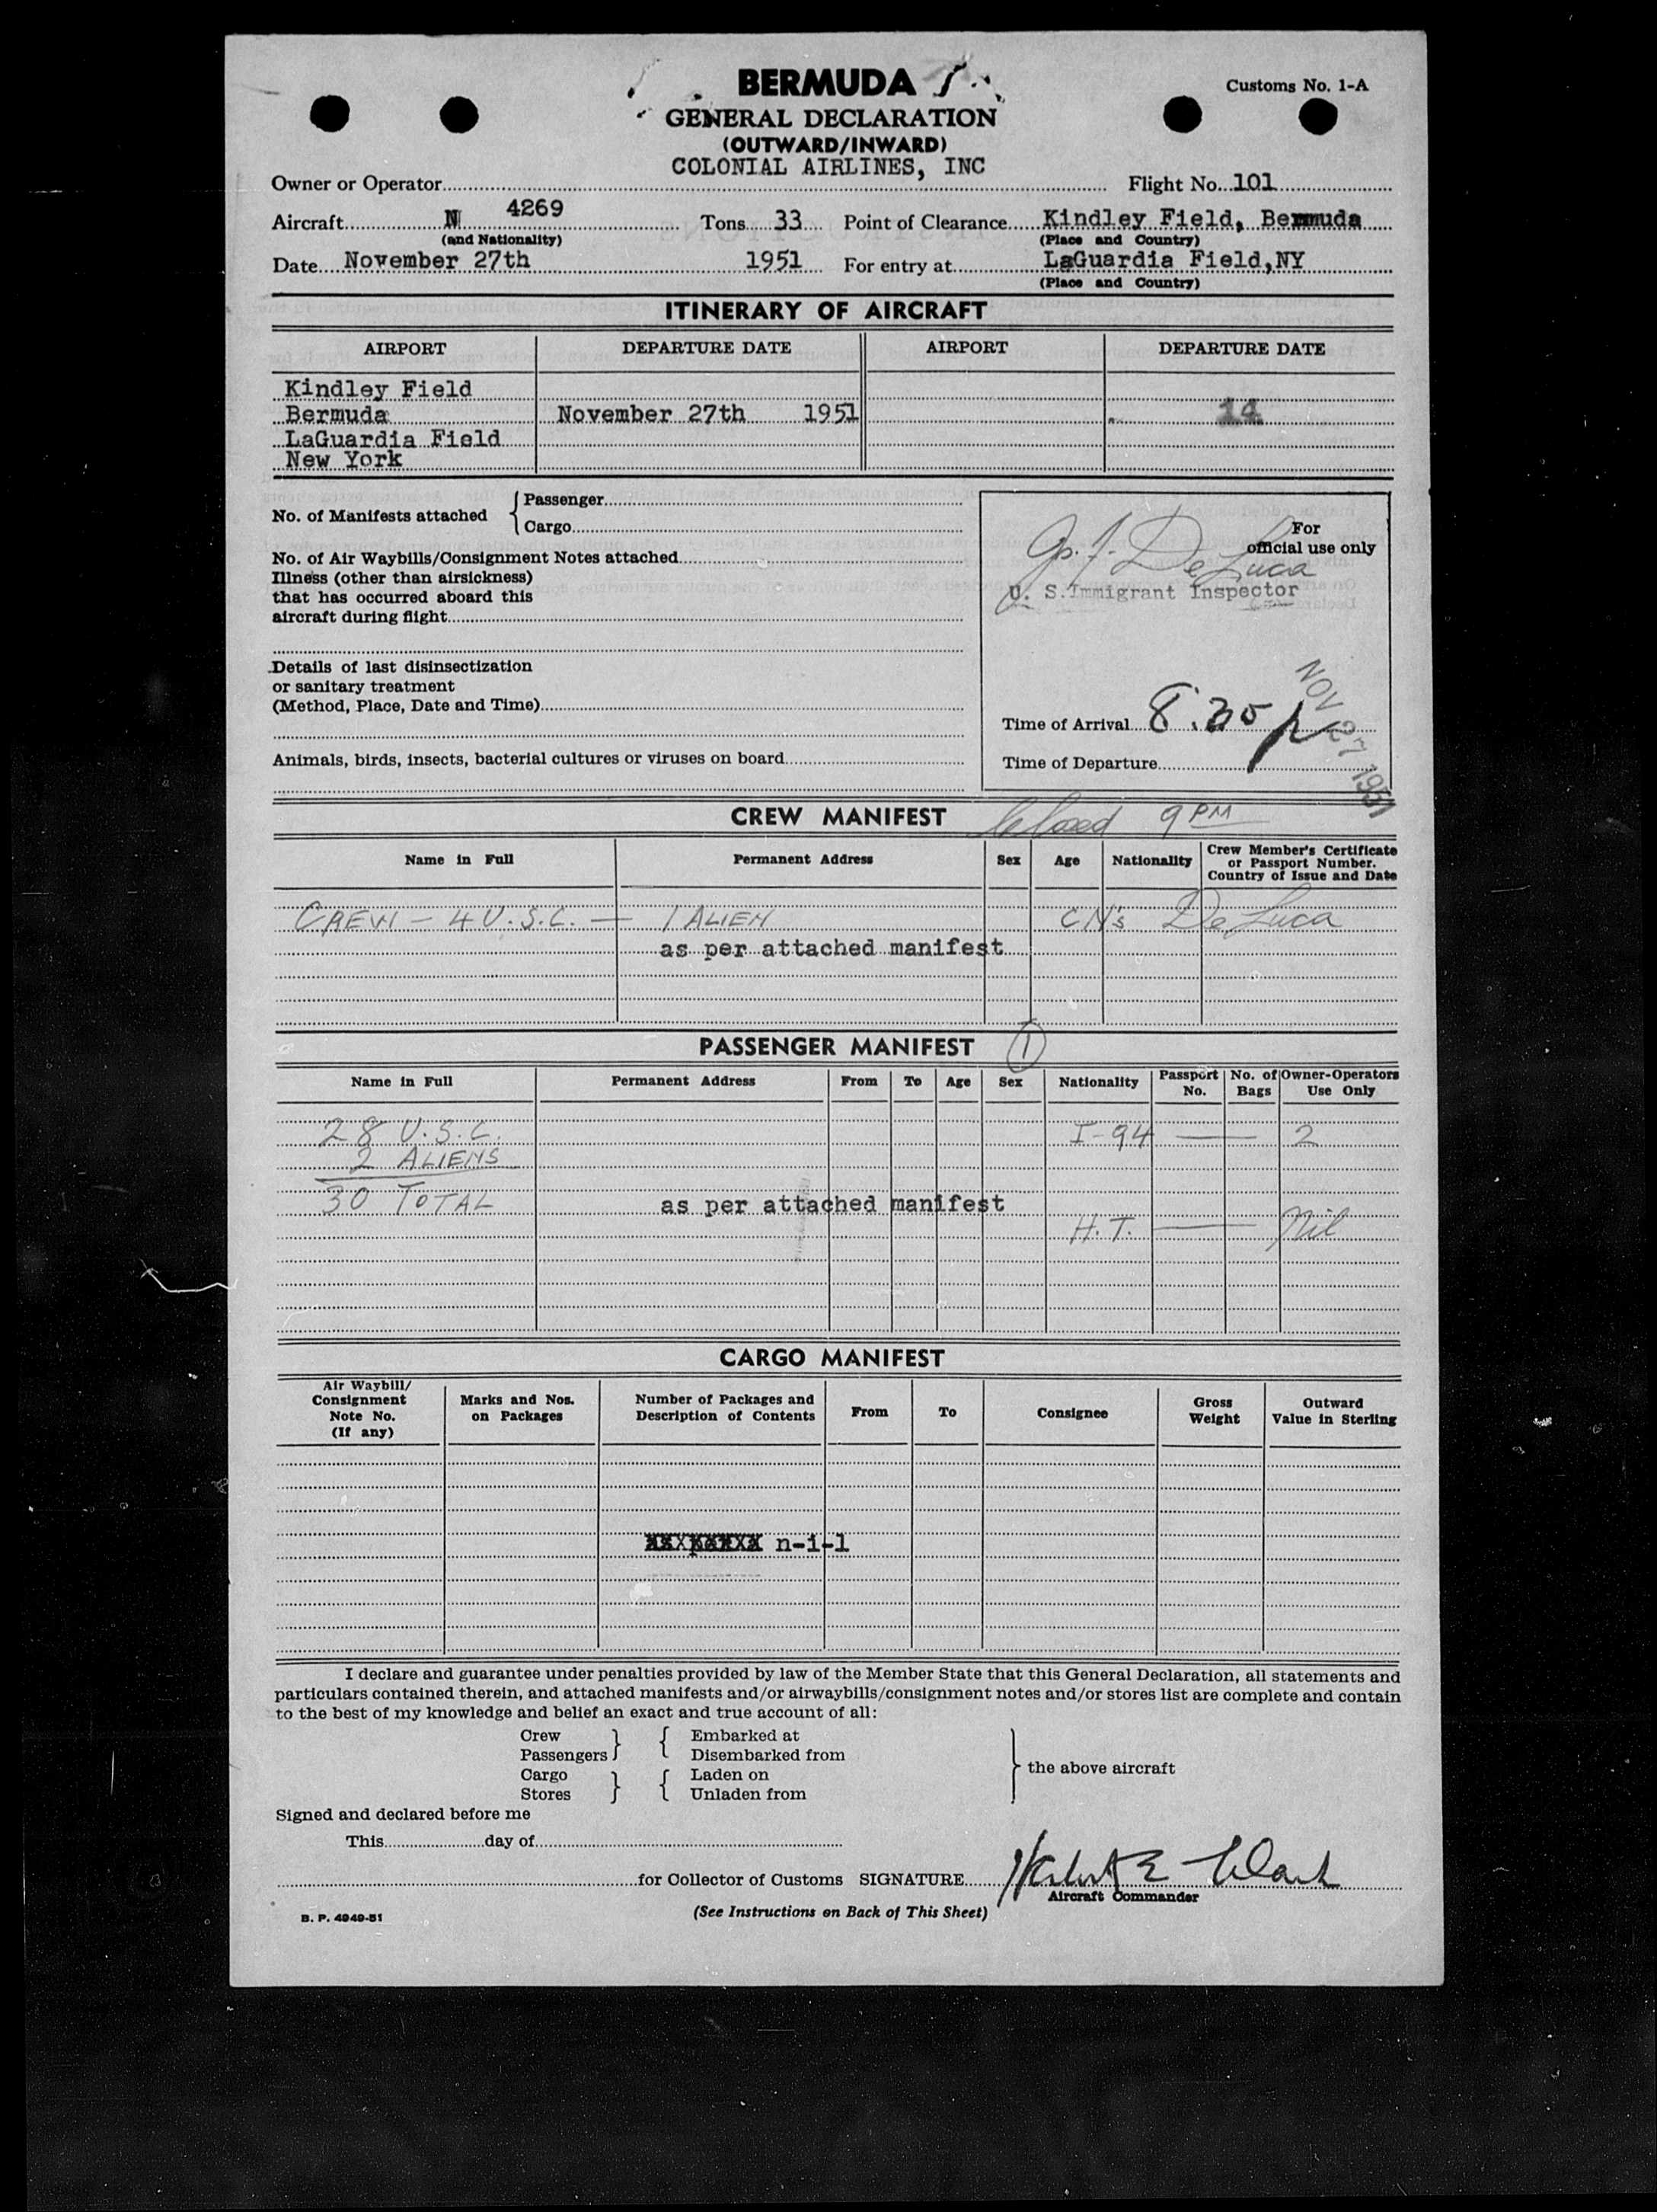 BERMUDA
Customs No. 1-A
GENERAL DECLARATION
(OUTWARD/INWARD)
COLONIAL AIRLINES, INC
Owner or Operator Flight No. 101
Aircraft N 4269 Tons 33 Point of Clearance Kindley Field, Bermuda
(and Nationality) (Place and Country)
Date November 27th 1951 For entry at LaGuardia Field, NY
(Place and Country)
ITINERARY OF AIRCRAFT
AIRPORT DEPARTURE DATE AIRPORT DEPARTURE DATE
Kindley Field
Bermuda November 27th 1951 14
LaGuardia Field
New York
No. of Manifests attached
Passenger
Cargo
No. of Air Waybills/Consignment Notes attached
Illness (other than airsickness)
that has occurred aboard this
aircraft during flight
Details of last disinsectization
or sanitary treatment
(Method, Place, Date and Time)
Animals, birds, insects, bacterial cultures or viruses on board
For
official use only
De Luca
U. S. Immigrant Inspector
NOV 27 1951
Time of Arrival 8.30 p
Time of Departure
CREW MANIFEST Closed 9 PM
Name in Full Permanent Address Sex Age Nationality Crew Member's Certificate
or Passport Number.
Country of Issue and Date
CREW - 4 U.S.C. - 1 ALIEN CN's De Luca
as per attached manifest
PASSENGER MANIFEST 1
Name in Full Permanent Address From To Age Sex Nationality Passport No. No. of Bags Owner-Operators Use Only
28 U.S.C. I-94 — 2
2 ALIENS
30 TOTAL
as per attached manifest
H.T. — Nil
CARGO MANIFEST
Air Waybill/
Consignment
Note No.
(If any)
Marks and Nos.
on Packages
Number of Packages and
Description of Contents
From
To
Consignee
Gross
Weight
Outward
Value in Sterling
n-i-l
I declare and guarantee under penalties provided by law of the Member State that this General Declaration, all statements and
particulars contained therein, and attached manifests and/or airwaybills/consignment notes and/or stores list are complete and contain
to the best of my knowledge and belief an exact and true account of all:
Crew Embarked at
Passengers Disembarked from
Cargo Laden on the above aircraft
Stores Unladen from
Signed and declared before me
This day of
for Collector of Customs SIGNATURE
Aircraft Commander
B. P. 4949-51
(See Instructions on Back of This Sheet)